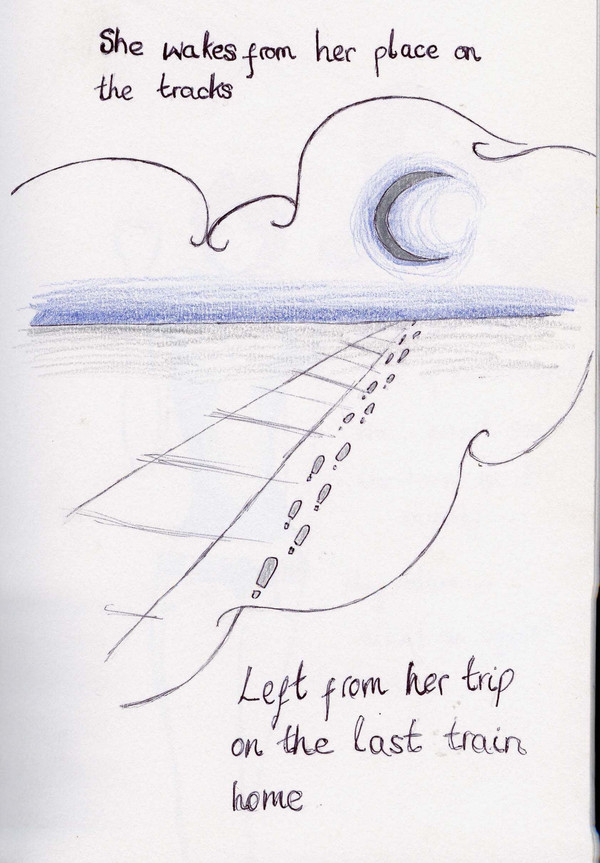 She wakes from her place on
the tracks
Left from her trip
on the last train
home